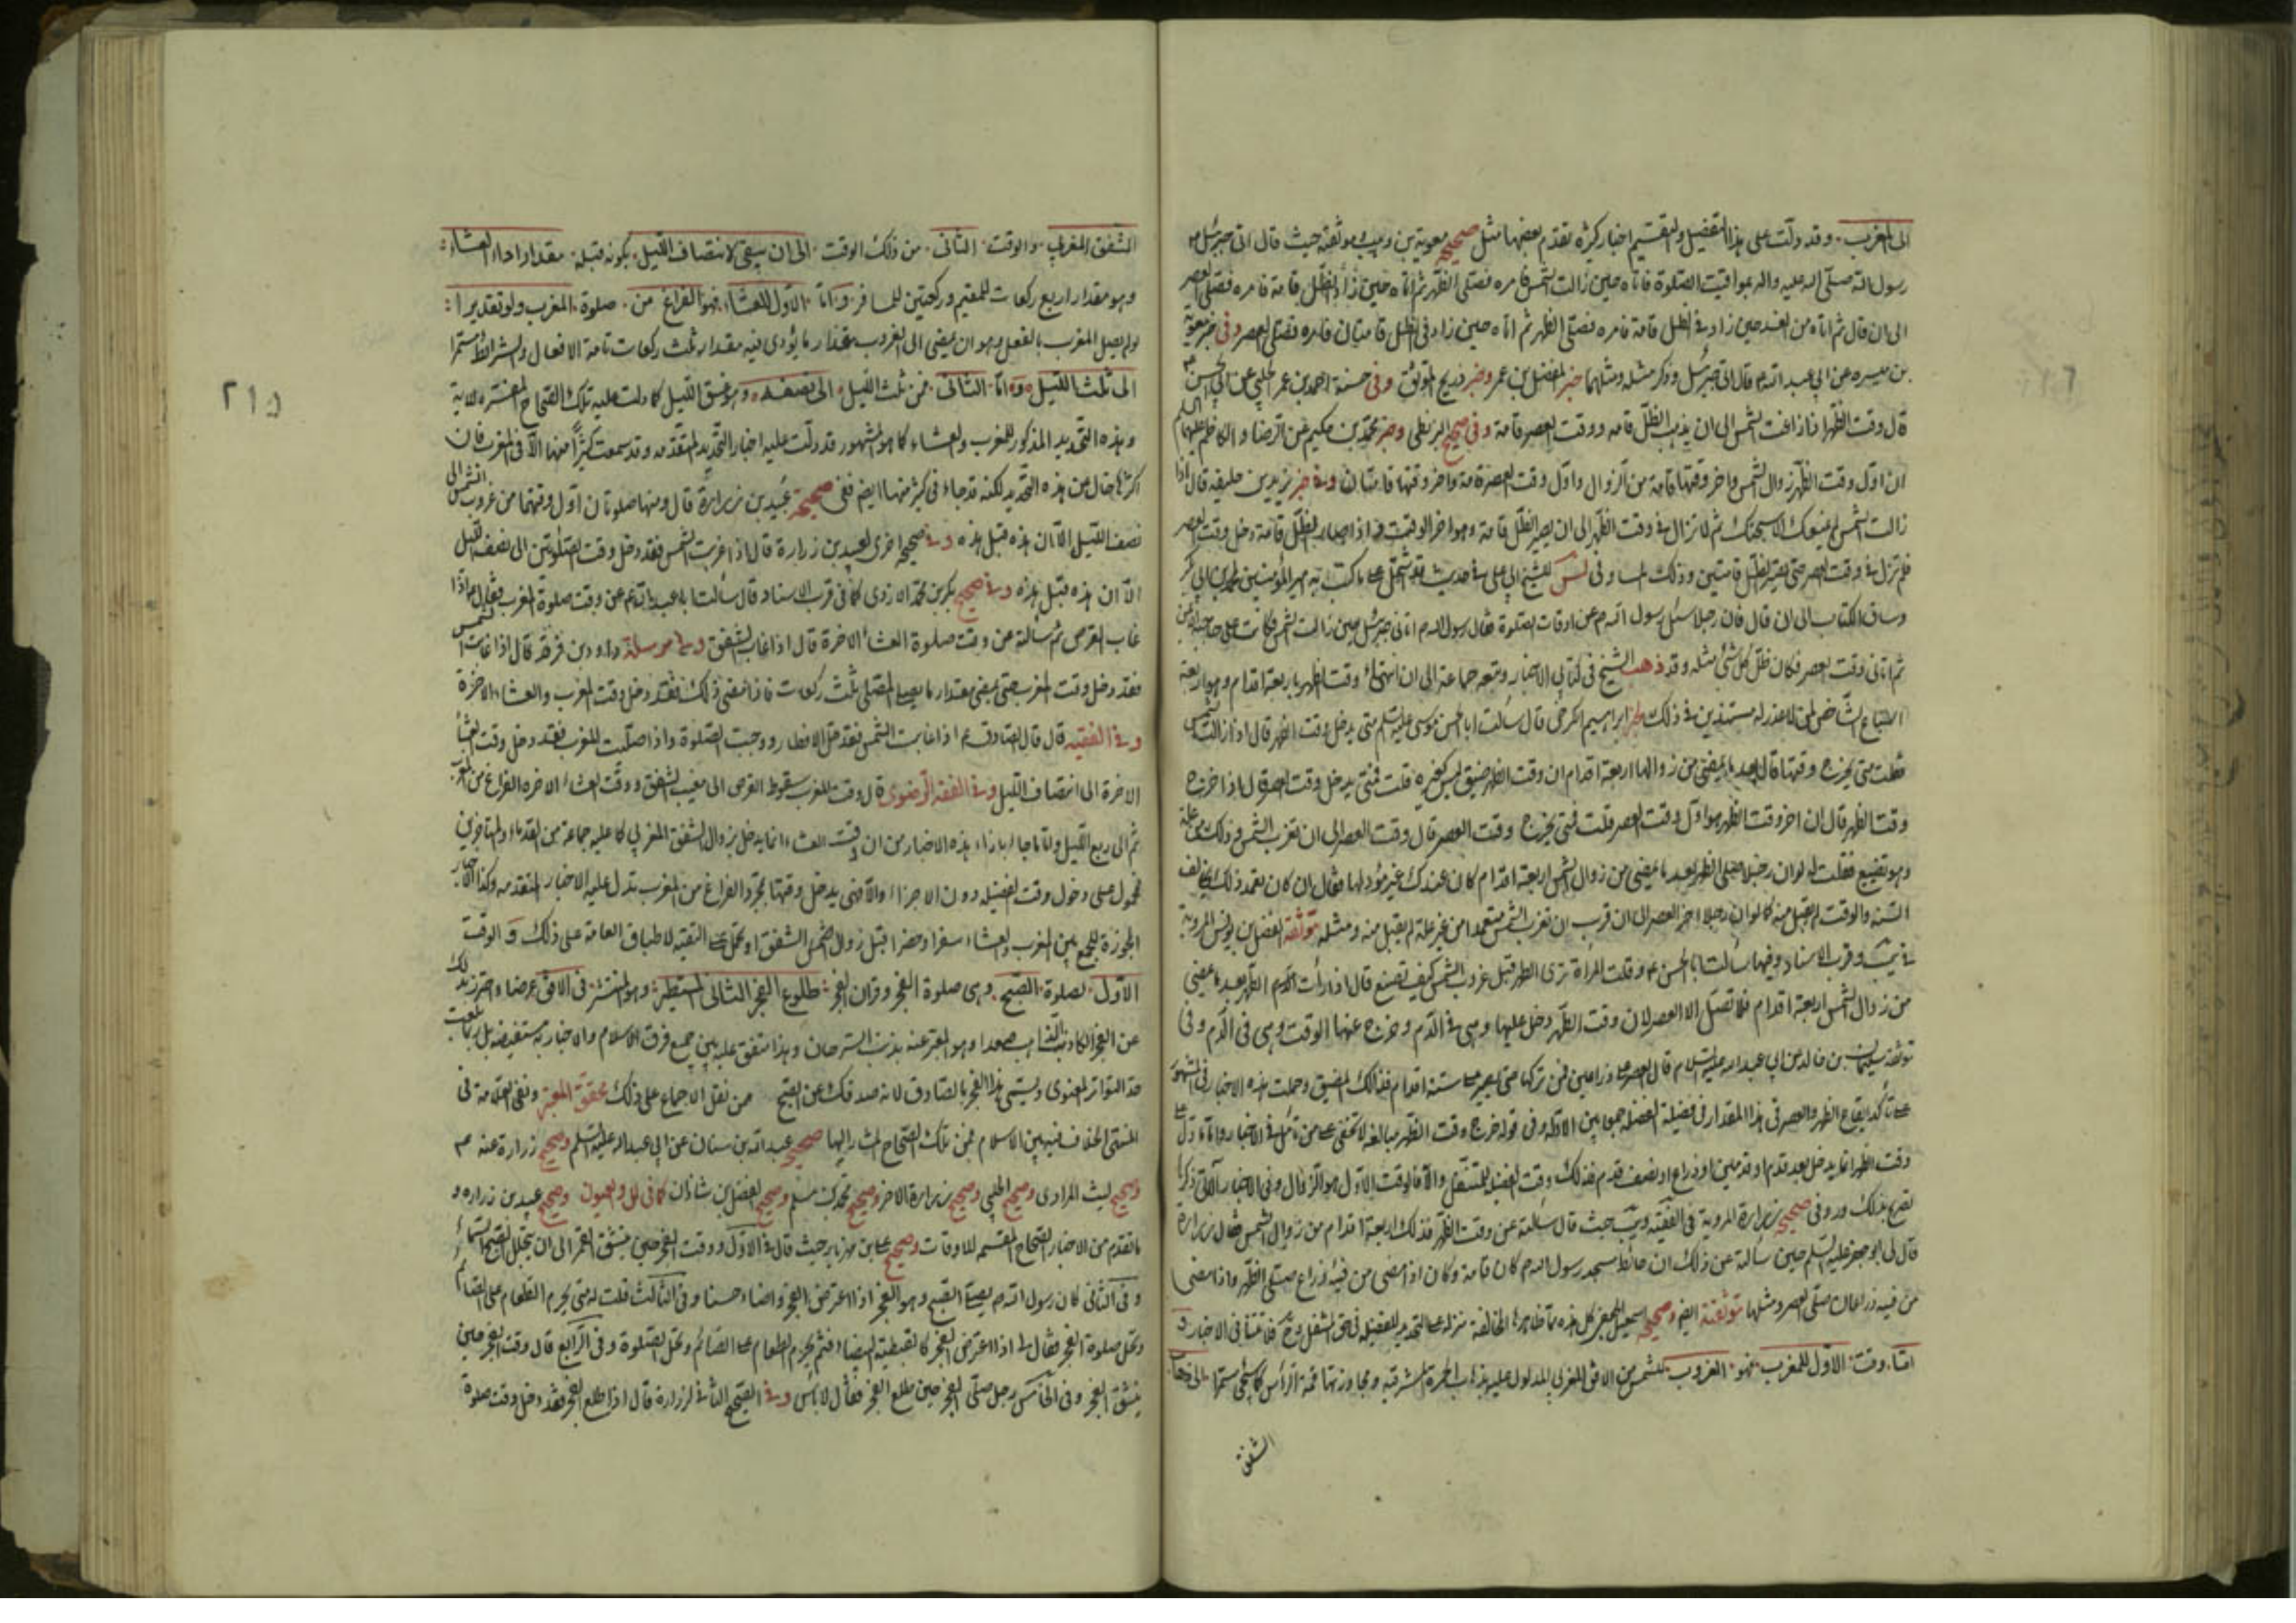 الى المغرب وقد دلت على هذا التفصيل والتقسيم اخبار كثيرة تقدم بعضها مثل صحيحة معوية بن وهب موثقته حيث قال اتى جبرئيل
رسول الله صلى الله عليه واله بمواقيت الصلوة فاتاه حين زالت الشمس فامره فصلى الظهر ثم اتاه حين زاد الظل قامة فامره فصلى العصر
الى ان قال ثم اتاه من الغد حين زاد في الظل قامة فامره فصلى الظهر ثم اتاه حين زاد في الظل قامتان فامره فصلى العصر وفي خبر معوية
بن ميسره عن ابي عبد الله قال اتى جبرئيل وذكر مثله ومثلهما خبر المفضل بن عمر وخبر ذريح الموثق وفي حسنة احمد بن عمر الحلبي عن ابي الحسن
قال وقت الظهر اذا زاغت الشمس الى ان يذهب الظل قامه ووقت العصر قامة وفي صحيح البزنطي وخبر محمد بن حكيم عن الرضا والكاظم عليهما السلم
ان اول وقت الظهر زوال الشمس واخر وقتها قامة من الزوال واول وقت العصر قامة واخر وقتها قامتان وفي خبر يزيد بن خليفه قال اذا
زالت الشمس لم يمنعك الا سبحتك ثم لا تزال في وقت الظهر الى ان يصير الظل قامة وهو اخر الوقت فاذا صار الظل قامة دخل وقت العصر
فلم تزل في وقت العصر حتى يصير الظل قامتين وذلك المسا وفي للشيخ ابي علي في حديث ما كتب به امير المؤمنين لمحمد بن ابي بكر
وساق الكتاب الى ان قال فان رجلا سئل رسول الله عن اوقات الصلوة فقال رسول الله اتاني جبرئيل حين زالت الشمس فكانت على حاجبه الايمن
ثم اتاني وقت العصر فكان ظل كل شئ مثله وقد ذهب الشيخ في كتابي الاخبار وتبعه جماعة الى ان انتهاء وقت الظهر باربعة اقدام وهو اربعة
اسباع الشاخص لمن لا عذر له مستندين في ذلك لخبر ابراهيم الكرخي قال سالت ابا الحسن موسى عليه السلم متى يدخل وقت الظهر قال اذا زالت الشمس
فقلت متى يخرج وقتها قال بعد ما يمضي من زوالها اربعة اقدام ان وقت الظهر ضيق ليس كغيره قلت فمتى يدخل وقت العصر قال اذا خرج
وقت الظهر قال ان اخر وقت الظهر هو اول وقت العصر قلت فمتى يخرج وقت العصر قال وقت العصر الى ان تغرب الشمس وذلك من علة
وهو تضييع فقلت له لو ان رجلا صلى الظهر بعد ما يمضي من زوال الشمس اربعة اقدام كان عندك غير مؤد لها فقال ان كان تعمد ذلك ليخالف
السنة والوقت لم يقبل منه كما لو ان رجلا اخر العصر الى ان قرب ان تغرب الشمس متعمدا من غير علة لم يقبل منه ومثله موثقة الفضل بن يونس المروية
في يب وقرب الاسناد وفيها سالت ابا الحسن وقلت المراة ترى الطهر قبل غروب الشمس كيف تصنع قال اذا رات الطهر بعد ما يمضي
من زوال الشمس اربعة اقدام فلا تصل الا العصر لان وقت الظهر دخل عليها وهي في الدم وخرج عنها الوقت وهي في الدم وفي
موثقة سليمان بن خالد عن ابي عبد الله عليه السلام قال العصر على ذراعين فمن تركها حتى يصير على ستة اقدام فذلك المضيع وحملت هذه الاخبار في المشهور
على تاكد ايقاع الظهر والعصر في هذا المقدار في فضيلة الفضل جمعا بين الادلة وفي قوله خرج وقت الظهر مبالغة لا تخفى على من تامل في الاخبار واما ما دل على
وقت الظهر انما يدخل بعد قدم او قدمين او ذراع او نصف قدم فذلك وقت الفضل للمتنفل والا فالوقت الاول هو الزوال وفي الاخبار الاتي ذكرها
تصريح بذلك ورد في صحيحة زرارة المروية في الفقيه ويب حيث قال سالته عن وقت الظهر فذلك اربعة اقدام من زوال الشمس فقال زرارة
قال لي ابو جعفر عليه السلم حين سالته عن ذلك ان حائط مسجد رسول الله كان قامة وكان اذا مضى من فيئه ذراع صلى الظهر واذا مضى
من فيئه ذراعان صلى العصر ومثلها موثقته ايضا وصحيحة اسمعيل الجعفي كل هذه مما ظاهرها المخالفة منزله على التحديد للفضيله
اما وقت الاول للمغرب فهو الغروب للشمس من الافق المغربي المدلول عليه بذهاب الحمرة المشرقيه ومجاوزتها قمة الراس كما سيجئ مستمرا الى ذهاب
الشفق
الشفق المغربي والوقت الثاني من ذلك الوقت الى ان يبقى لانتصاف الليل بكونه قبله مقدار اداء العشاء
وهو مقدار اربع ركعات للمقيم وركعتين للمسافر واما الاول للعشاء فهو الفراغ من صلوة المغرب ولو تقديرا
لو لم يصل المغرب بالفعل وهو ان يمضي الى الغروب مقدار ما يؤدى فيه مقدار ثلث ركعات تامة الافعال والشرائط مستمرا
الى ثلث الليل واما الثاني فمن ثلث الليل الى نصفه وهو غسق الليل كما دلت عليه تلك الصحاح المفسرة للاية
وهذه التحديد المذكور للمغرب والعشاء كما هو المشهور قد دلت عليه اخبار التحديد المتقدمه وقد سمعت كثيرا منها الا في المغرب فان
اكثرها خال من هذه التحديد لكنه قد جاء في كثير منها ايضا ففي صحيحة عبيد بن زرارة قال ومنها صلوتان اول وقتهما من غروب الشمس الى
نصف الليل الا ان هذه قبل هذه وفي صحيحه اخرى لعبيد بن زرارة قال اذا غربت الشمس فقد دخل وقت الصلوتين الى نصف الليل
الا ان هذه قبل هذه وفي صحيح بكر بن محمد الازدي كما في قرب الاسناد قال سالت ابا عبد الله عن وقت صلوة المغرب فقال اذا
غاب القرص ثم سالته عن وقت صلوة العشاء الاخرة قال اذا غاب الشفق وفي مرسلة داود بن فرقد قال اذا غابت الشمس
فقد دخل وقت المغرب حتى يمضي مقدار ما يصلي المصلي ثلث ركعات فاذا مضى ذلك فقد دخل وقت المغرب والعشاء الاخرة
وفي الفقيه قال قال الصادق اذا غابت الشمس فقد حل الافطار ووجبت الصلوة واذا صليت المغرب فقد دخل وقت العشاء
الاخرة الى انتصاف الليل وفي الفقه الرضوي قال وقت المغرب سقوط القرص الى مغيب الشفق ووقت العشاء الاخره الفراغ من المغرب
ثم الى ربع الليل واما ما جاء بازاء هذه الاخبار من ان وقت العشاء انما يدخل بزوال الشفق المغربي كما عليه جماعة من القدماء والمتاخرين
فمحمول على دخول وقت الفضيله دون الاجزاء والا فهي يدخل وقتها بمجرد الفراغ من المغرب تدل عليه الاخبار المتقدمه وكذا الاخبار
المجوزة للجمع بين المغرب والعشاء سفرا وحضرا قبل زوال الشفق او تحمل على التقيه لاطباق العامة على ذلك و الوقت
الاول لصلوة الصبح وهي صلوة الفجر وقران الفجر طلوع الفجر الثاني المستطير وهو المنتشر في الافق عرضا واحترز بذلك
عن الفجر الكاذب الذاهب صعدا وهو المعبر عنه بذنب السرحان وهذا متفق عليه بين جميع فرق الاسلام والاخبار به مستفيضه بل بلغت
حد التواتر المعنوي ويسمى هذا الفجر بالصادق لانه صدقك عن الصبح ممن نقل الاجماع على ذلك محقق المعتبر ونفى العلامة في
المنتهى الخلاف فيه بين الاسلام فمن تلك الصحاح المشار اليها صحيح عبد الله بن سنان عن ابي عبد الله عليه السلم وصحيح زرارة عنه
وصحيح ليث المرادي وصحيح الحلبي وصحيح زرارة الاخر وصحيح محمد بن مسلم وصحيح الفضل بن شاذان كما في العلل والعيون وصحيح عبيد بن زراره و
ما تقدم من الاخبار الصحاح المقسمه للاوقات وصحيح علي بن مهزيار حيث قال في الاول ووقت الفجر حين ينشق الفجر الى ان يتجلل الصبح السماء
وفي الثاني كان رسول الله يصلي الصبح وهو الفجر اذا اعترض الفجر واضاء حسنا وفي الثالث قلت له متى يحرم الطعام على الصائم
وتحل صلوة الفجر فقال لي اذا اعترض الفجر كالقبطية البيضاء فثم يحرم الطعام على الصائم وتحل الصلوة وفي الرابع قال وقت الفجر حين
ينشق الفجر وفي الخامس رجل صلى الفجر حين طلع الفجر فقال لا باس وفي الصحيح الثاني لزرارة قال اذا طلع الفجر فقد دخل وقت صلوة